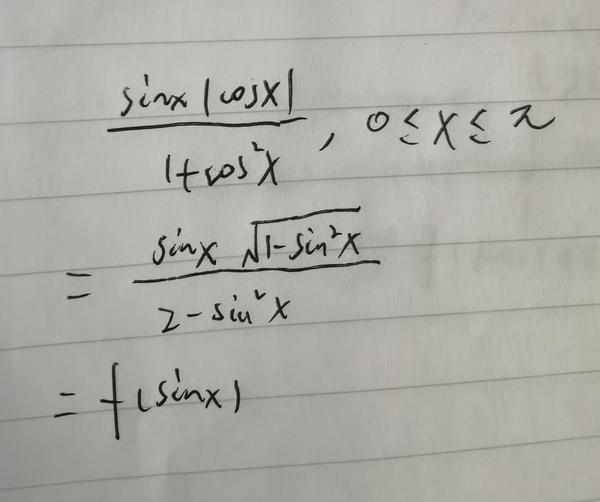 \frac{sinx |cosx|}{1+cos²x}, 0 ≤ x ≤ π
= \frac{sinx \sqrt{1-sin²x}}{2-sin²x}
= f(sinx)